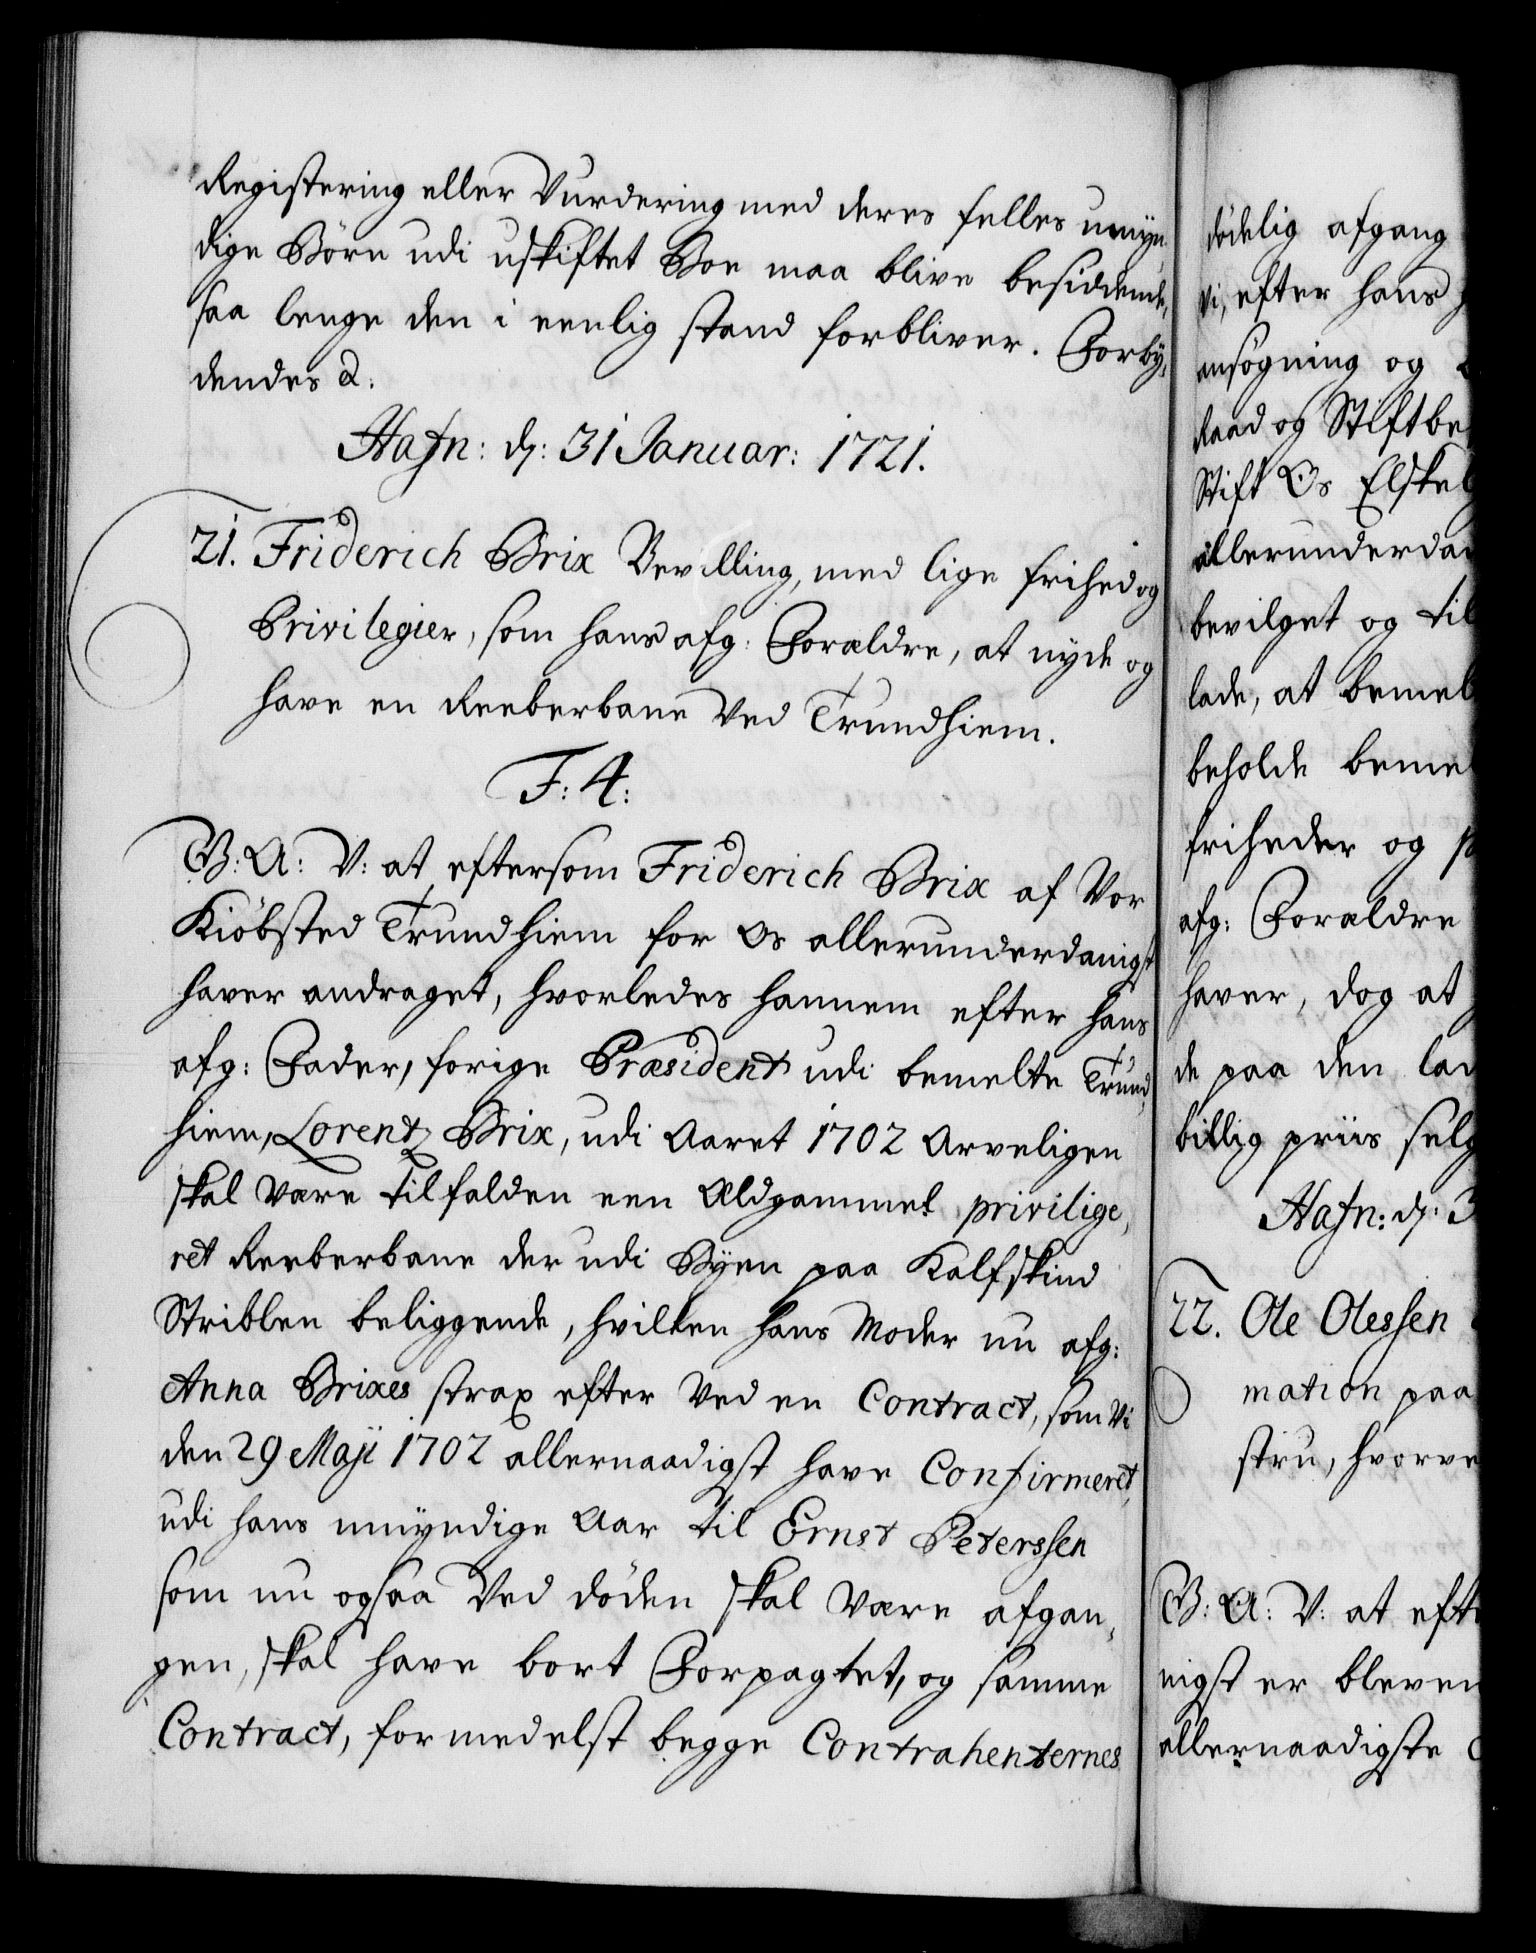 Registering eller Vurdering med deres felles umÿn-
dige Börn udi uskiftet Boe maa blive besiddende,
saa lenge den i eenlig stand forbliver. Forbÿ,
dendes &:
Hafn: d: 31 Januar: 1721.
21. Friderich Brix Bevilling, med lige frihed og
Privilegier, som hans afg: Forældre, at nyde og
have en Reeberbane ved Trundhiem.
F: 4:
G: A: V: at eftersom Friderich Brix af Vor
Kiöbsted Trundhiem for Os allerunderdanigst
haver andraget, hvorledes hannem efter hans
afg: Fader, forige Præsident udi bemelte Trund,
hiem, Lorentz Brix, udi Aaret 1702 Arveligen
skal være tilfalden een Ældgammel privilige,
ret Reeberbane der udi Bÿen paa Kalfskind
Striblen beliggende, hvilken hans Moder nu afg:
Anna Brixes strax efter ved en Contract, som Vi
den 29 Maji 1702 allernaadigst have Confirmeret,
udi hans umÿndige Aar til Ernst Peterssen
som nu ogsaa ved döden skal være afgan,
gen, skal have bort Forpagtet, og samme
Contract, formedelst begge Contrahenternes
dödelig afgang
Vi, efter hans
ansögning og
Raad og Stiftbe
Stift Os Elskel
allerunderdan
bevilget og til
lade, at bemel
beholde bemel
friheder og p
afg: Forældre
haver, dog at
de paa den
billig priis selg
Hafn: d: 3
22. Ole Olessen
mation paa
stru, hvorve
G: A: V: at efte
nigst er bleven
allernaadigste